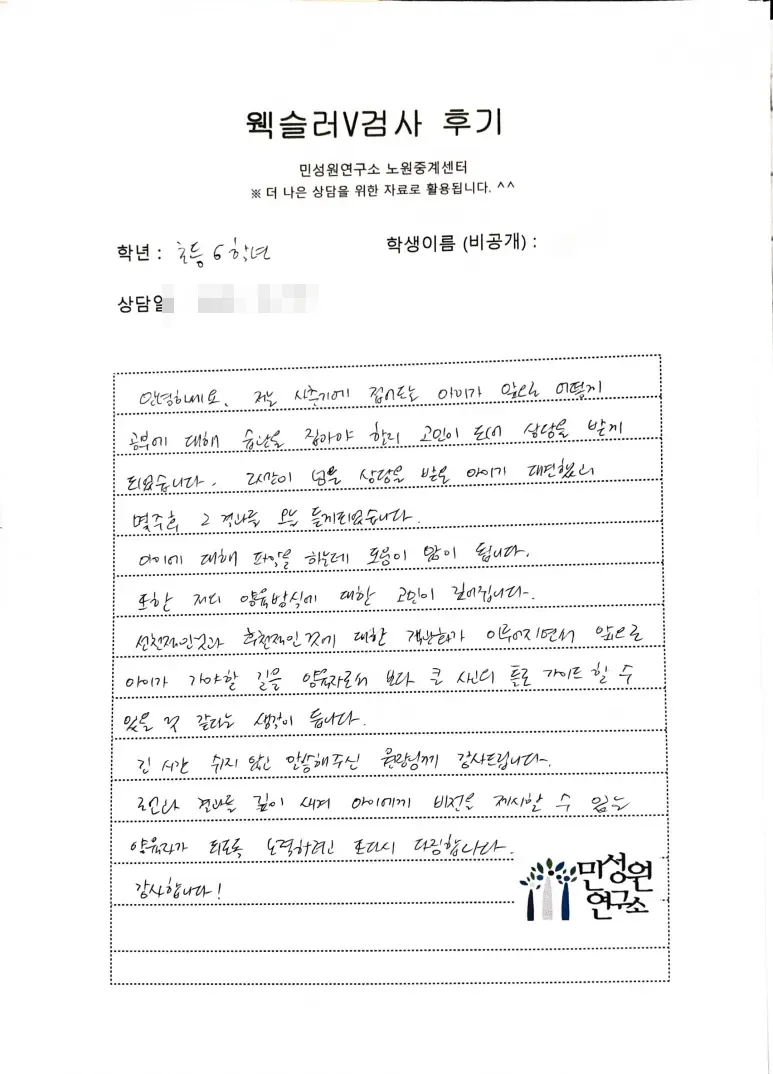 웩슬러V검사 후기
민성원연구소 노원중계센터
※ 더 나은 상담을 위한 자료로 활용됩니다. ^^
학년 : 초등 6학년
학생이름 (비공개) :
상담일
안녕하세요. 저는 사춘기에 접어드는 아이가 앞으로 어떻게
공부에 대해 습관을 잡아야 할지 고민이 되어 상담을 받게
되었습니다. 2시간이 넘을 상담을 받을 아이가 대면했고
몇주후 그 결과를 오늘 듣게되었습니다.
아이에 대해 파악을 하는데 도움이 많이 됩니다.
또한 저의 양육방식에 대한 고민이 깊어집니다.
선천적인것과 후천적인 것에 대한 객관화가 이루어지면서 앞으로
아이가 가야할 길을 양육자로서 보다 큰 사신의 틀로 가이드 할 수
있을 것 같다는 생각이 듭니다.
긴 시간 쉬지 않고 말씀해주신 원장님께 감사드립니다.
조언과 결과를 깊이 새겨 아이에게 비전을 제시할 수 있는
양육자가 되도록 노력하려고 또다시 다짐합니다.
감사합니다!
민성원
연구소